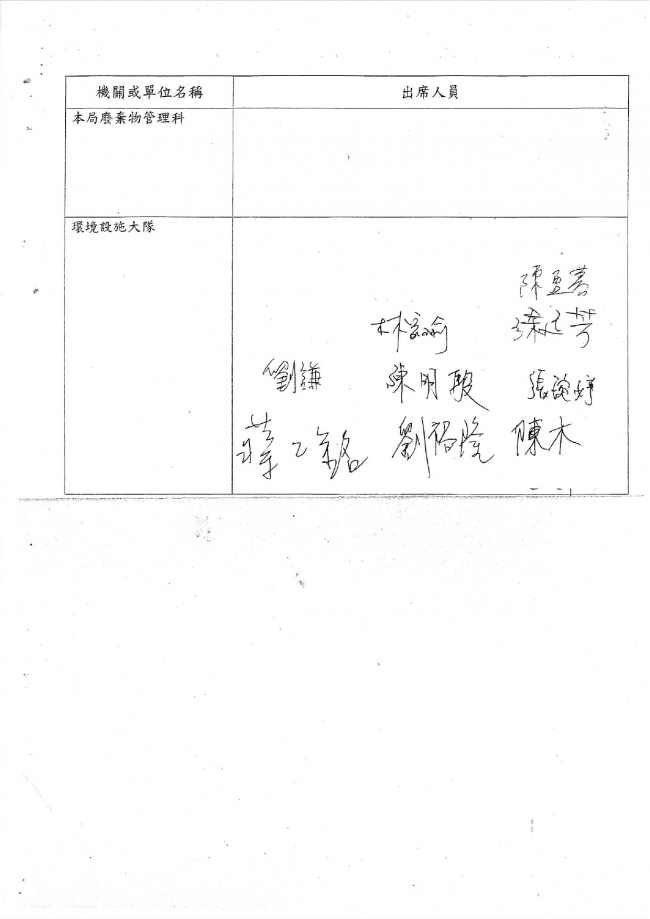 機關或單位名稱 出席人員
本局廢棄物管理科
環境設施大隊
陳孟蓉
林
劉謙 陳明駿 張婷
蔣乙銘 劉裕隆 陳木